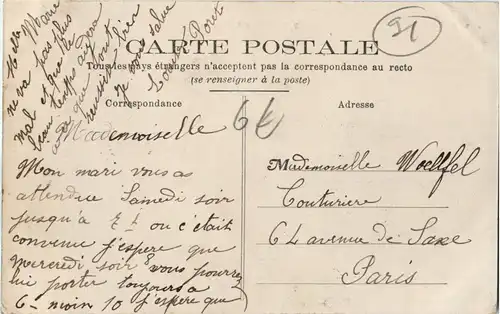 91
CARTE POSTALE
Tous les pays étrangers n'acceptent pas la correspondance au recto
(se renseigner à la poste)
Correspondance
Adresse
6t
Mademoiselle
Mon mari vous a
attendue Samedi soir
jusqu'a 7 ou c'était
convenu j'espere que
Mercredi soir vous pourrez
lui porter toujours a
6 - moin 10 j'espere que
Melle Marie
ne va pas plus
mal et que le
beau temps
que tout
reussit bien
je vous salue
Louise
Mademoiselle Woelffel
Couturiere
64 avenue de Saxe
Paris